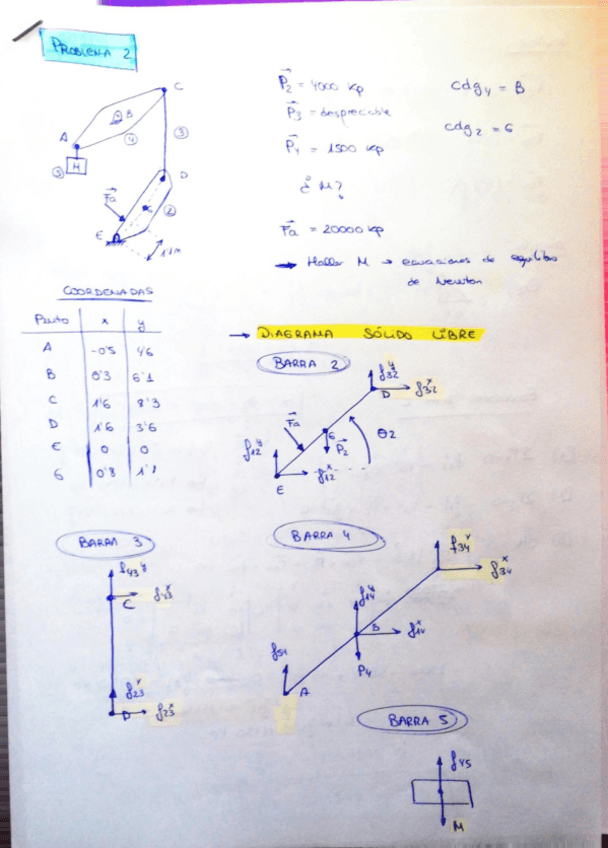 PROBLEMA 2
C
B
A
4
3
M
5
D
Fa
6
2
E
P2 = 4000 Kp
cdg4 = B
P3 = despreciable
cdg2 = 6
P4 = 1500 Kp
¿ M?
Fa = 20000 Kp
→ Hallar M → ecuaciones de equilibrio
de Newton
COORDENADAS
Punto x y
A -0'5 4'6
B 0'3 6'1
C 1'6 8'3
D 1'6 3'6
E 0 0
6 0'8 1'1
→ DIAGRAMA SÓLIDO LIBRE
BARRA 2
f32y
f32x
D
Fa
6
P2
θ2
f12y
f12x
E
BARRA 3
f43y
f43x
C
f23y
f23x
D
BARRA 4
f34y
f34x
f14y
f14x
B
P4
f54
A
BARRA 5
f45
M